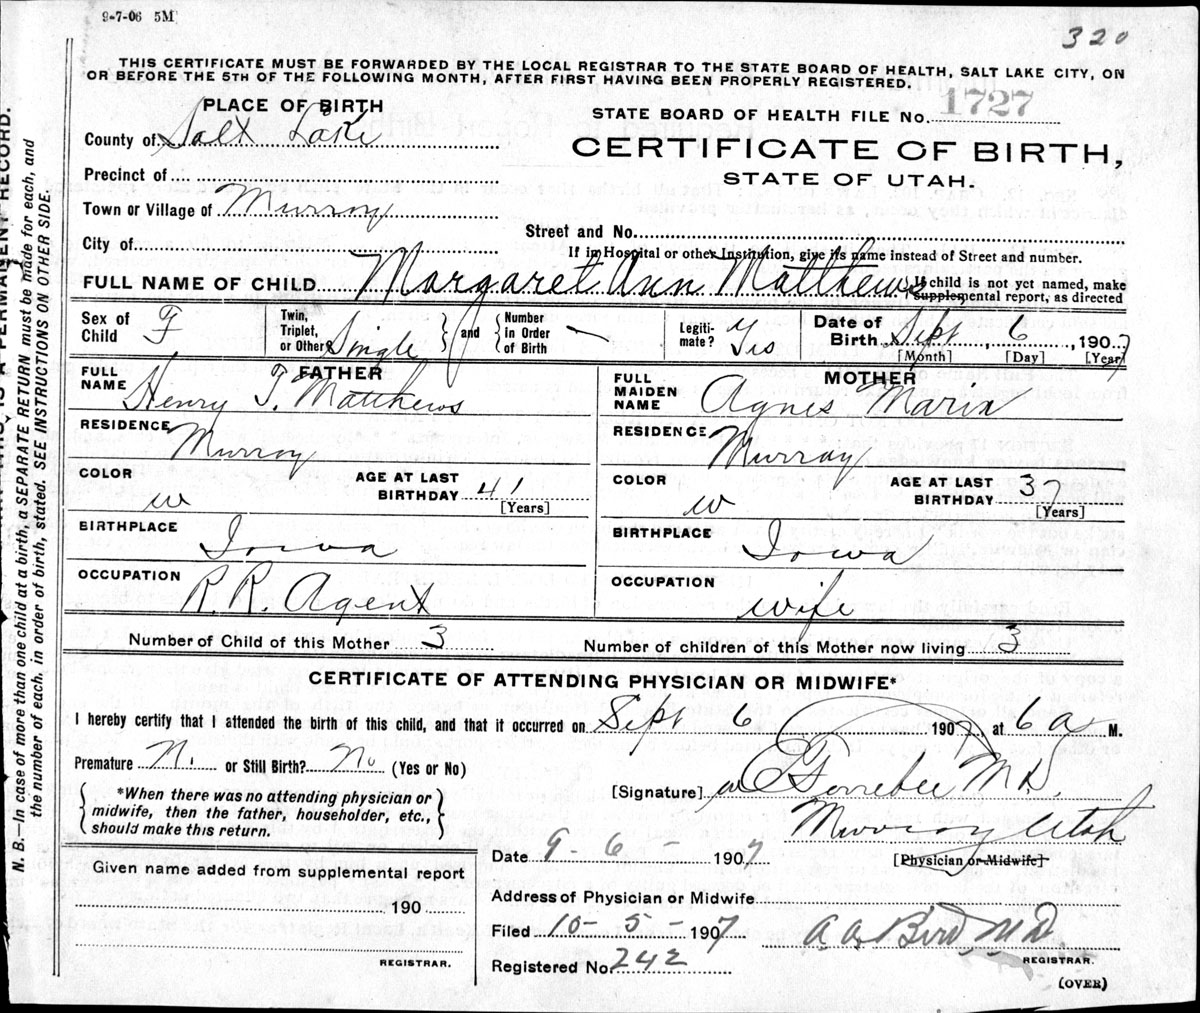 9-7-06 5M
320
THIS CERTIFICATE MUST BE FORWARDED BY THE LOCAL REGISTRAR TO THE STATE BOARD OF HEALTH, SALT LAKE CITY, ON
OR BEFORE THE 5TH OF THE FOLLOWING MONTH, AFTER FIRST HAVING BEEN PROPERLY REGISTERED.
PLACE OF BIRTH
STATE BOARD OF HEALTH FILE No. 1727
County of Salt Lake
CERTIFICATE OF BIRTH,
STATE OF UTAH.
Precinct of
Town or Village of Murray
Street and No.
City of
If in Hospital or other Institution, give its name instead of Street and number.
FULL NAME OF CHILD Margaret Ann Matthews
If child is not yet named, make
supplemental report, as directed
Sex of Child F
Twin, Triplet, or Other? Single
and
Number in Order of Birth —
Legiti-mate? Yes
Date of Birth Sept 6, 1907
[Month] [Day] [Year]
FATHER
FULL NAME Henry T. Matthews
RESIDENCE Murray
COLOR w
AGE AT LAST BIRTHDAY 41
[Years]
BIRTHPLACE Iowa
OCCUPATION R.R. Agent
MOTHER
FULL MAIDEN NAME Agnes Marin
RESIDENCE Murray
COLOR w
AGE AT LAST BIRTHDAY 37
[Years]
BIRTHPLACE Iowa
OCCUPATION wife
Number of Child of this Mother 3
Number of children of this Mother now living 3
CERTIFICATE OF ATTENDING PHYSICIAN OR MIDWIFE*
I hereby certify that I attended the birth of this child, and that it occurred on Sept 6 1907, at 6 a M.
Premature N. or Still Birth? No (Yes or No)
*When there was no attending physician or
midwife, then the father, householder, etc.,
should make this return.
[Signature] M.D.
Murray Utah
Date 9-6- 1907
[Physician or Midwife]
Given name added from supplemental report
190
REGISTRAR.
Address of Physician or Midwife
Filed 10-5- 1907
A A Bird M D.
REGISTRAR.
Registered No. 242
(OVER)
N. B.—In case of more than one child at a birth, a SEPARATE RETURN must be made for each, and
the number of each, in order of birth, stated. SEE INSTRUCTIONS ON OTHER SIDE.
IS A PERMANENT RECORD.